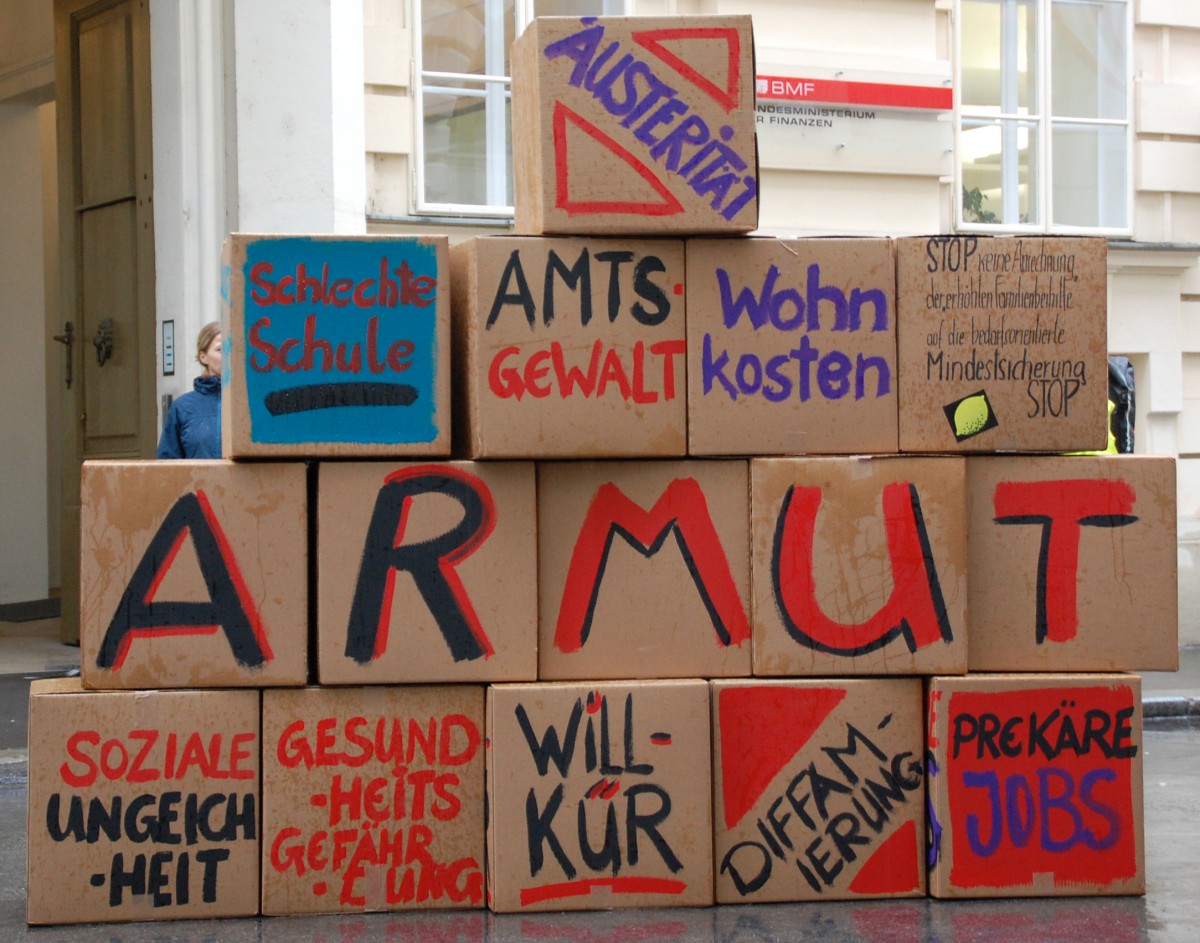 AUSTERITÄT
BMF
NDESMINISTERIUM
R FINANZEN
Schlechte
Schule
AMTS-
GEWALT
Wohn
kosten
STOP keine Anrechnung
der erhöhten Familienbeihilfe
auf die bedarfsorientierte
Mindestsicherung
STOP
ARMUT
SOZIALE
UNGEICH
-HEIT
GESUND
-HEITS
GEFÄHR
-DUNG
WILL-
KÜR
DIFFAM-
IERUNG
PREKÄRE
JOBS